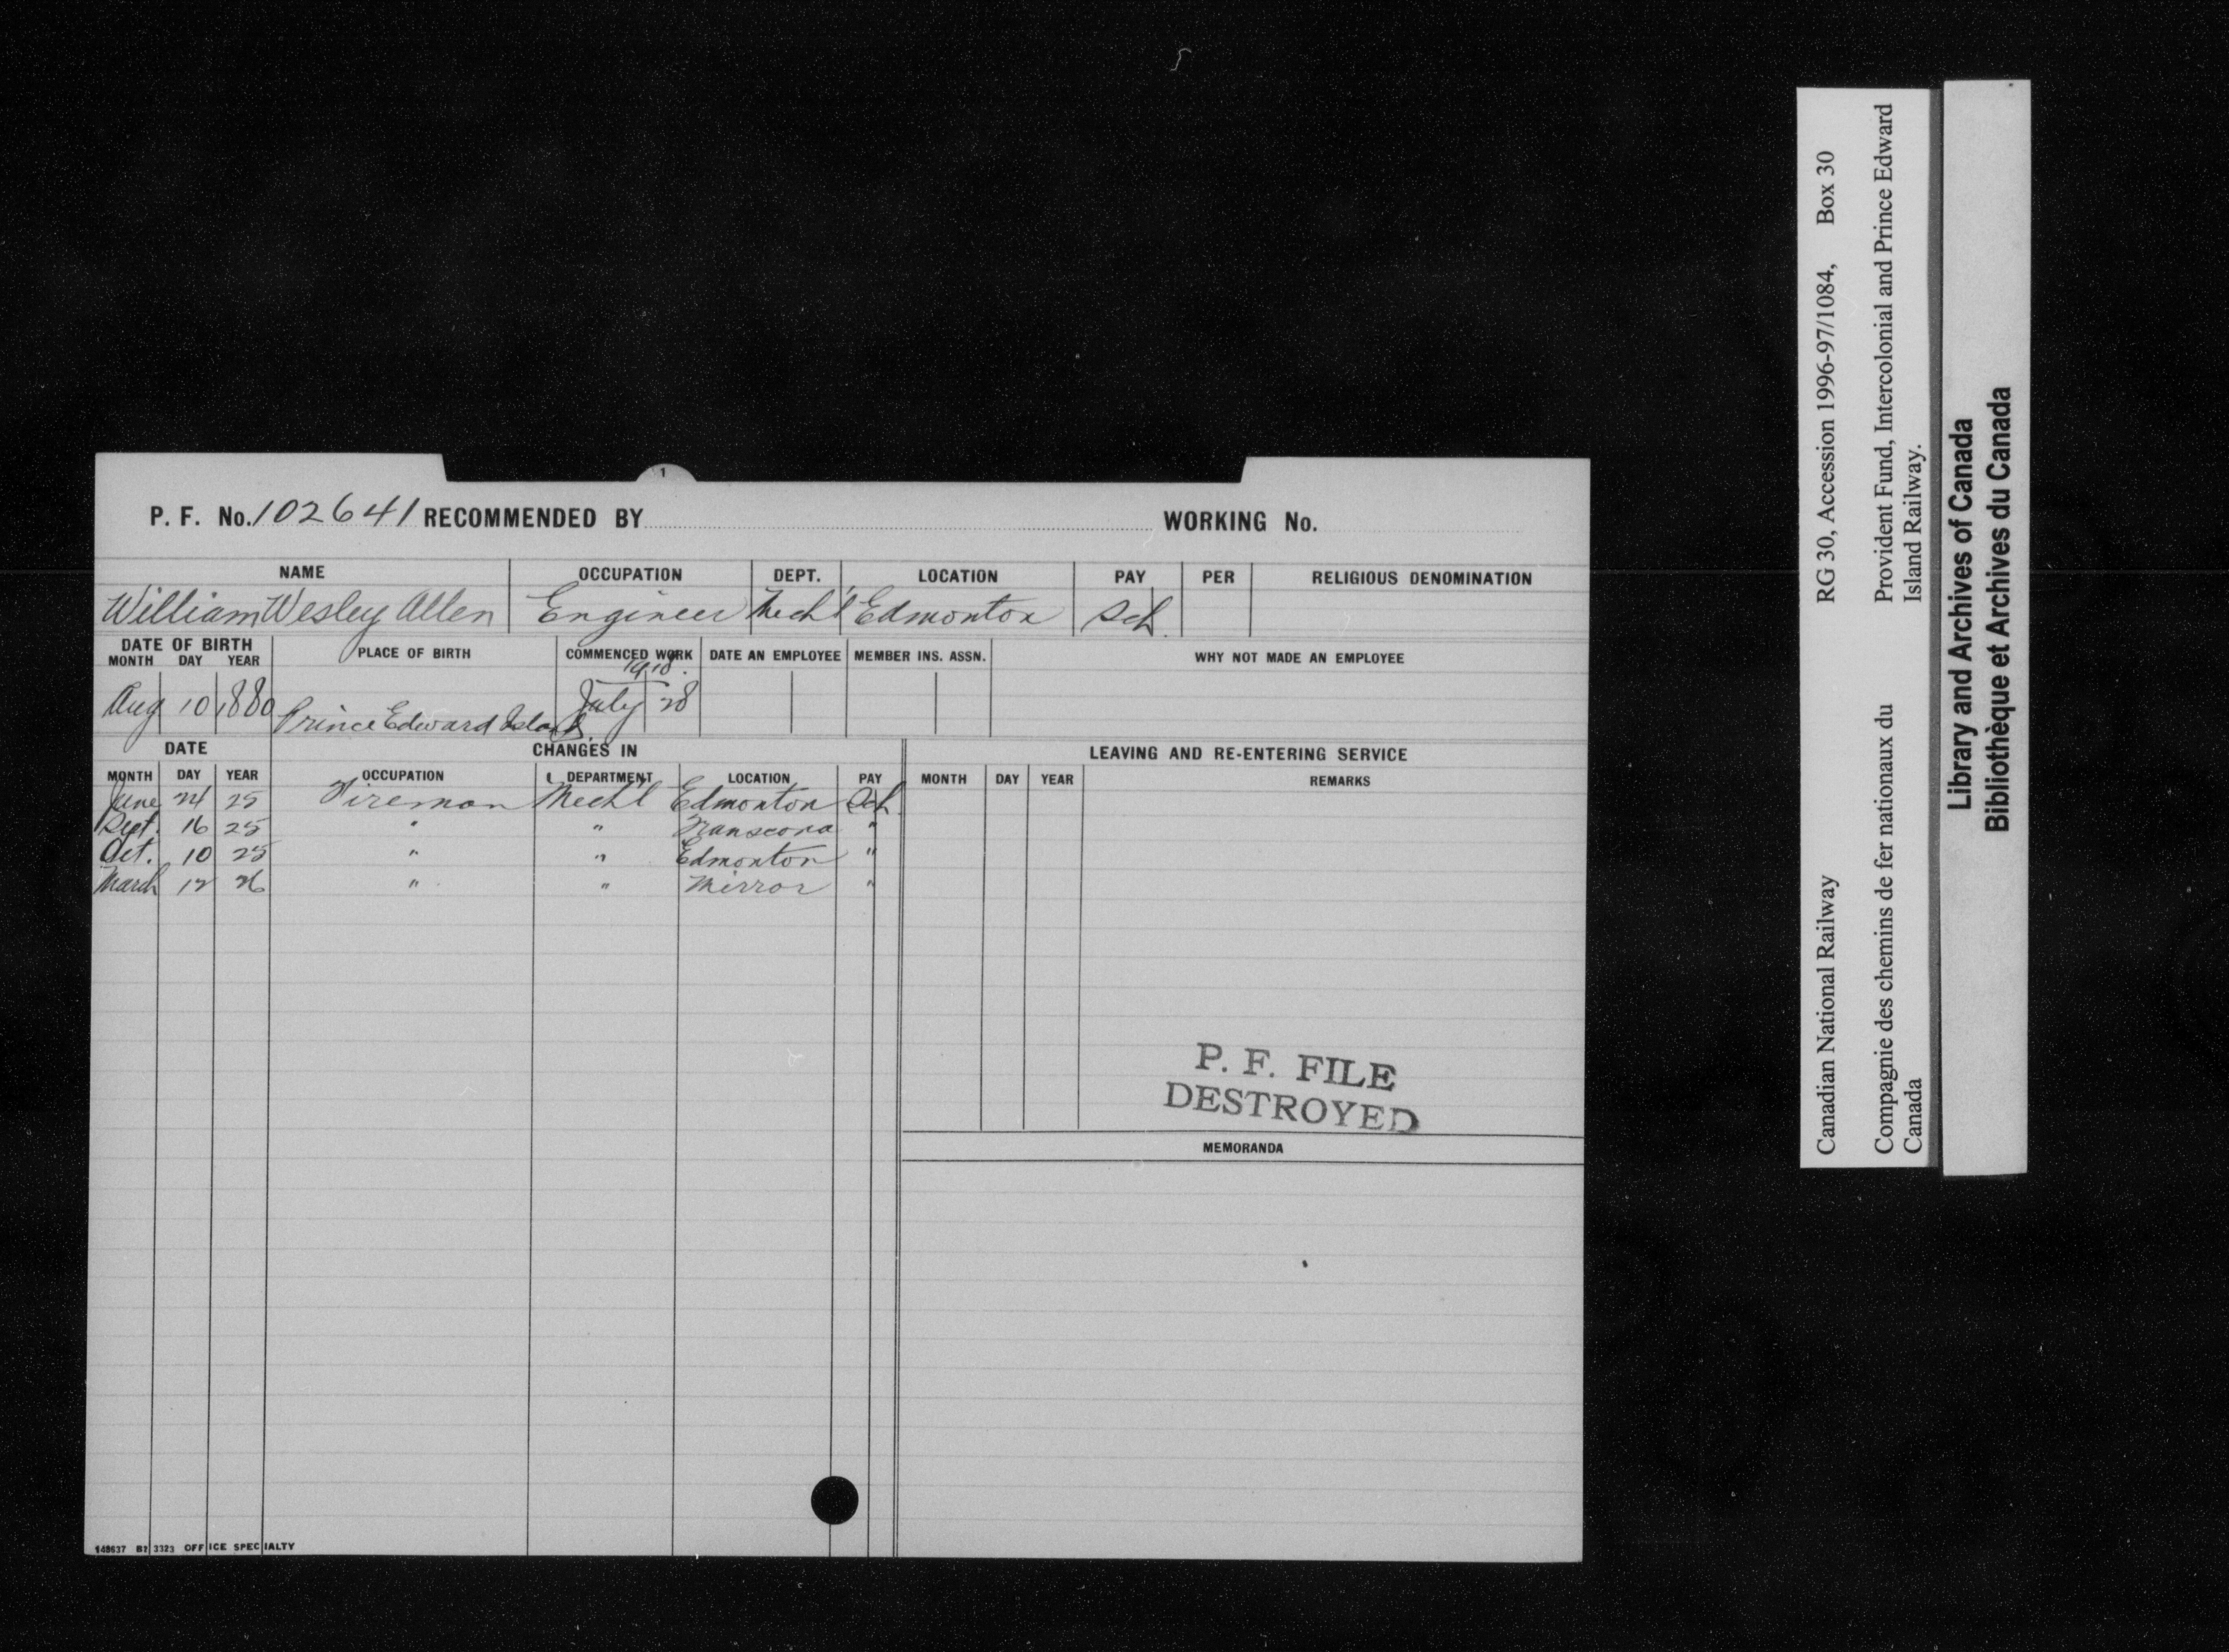 1
P. F. No. 102641 RECOMMENDED BY WORKING No.
NAME OCCUPATION DEPT. LOCATION PAY PER RELIGIOUS DENOMINATION
William Wesley Allen Engineer Mech'l Edmonton Sch.
DATE OF BIRTH PLACE OF BIRTH COMMENCED WORK DATE AN EMPLOYEE MEMBER INS. ASSN. WHY NOT MADE AN EMPLOYEE
MONTH DAY YEAR
1918.
Aug 10 1880 Prince Edward Island. July 28
DATE CHANGES IN LEAVING AND RE-ENTERING SERVICE
MONTH DAY YEAR OCCUPATION DEPARTMENT LOCATION PAY MONTH DAY YEAR REMARKS
June 24 25 Fireman Mech'l Edmonton Sch.
Sept. 16 25 " " Transcona "
Oct. 10 25 " " Edmonton "
March 12 26 " " Mirror "
P. F. FILE
DESTROYED
MEMORANDA
148637 B1 3323 OFFICE SPECIALTY
Canadian National Railway RG 30, Accession 1996-97/1084, Box 30
Compagnie des chemins de fer nationaux du Provident Fund, Intercolonial and Prince Edward
Canada Island Railway.
Library and Archives of Canada
Bibliothèque et Archives du Canada